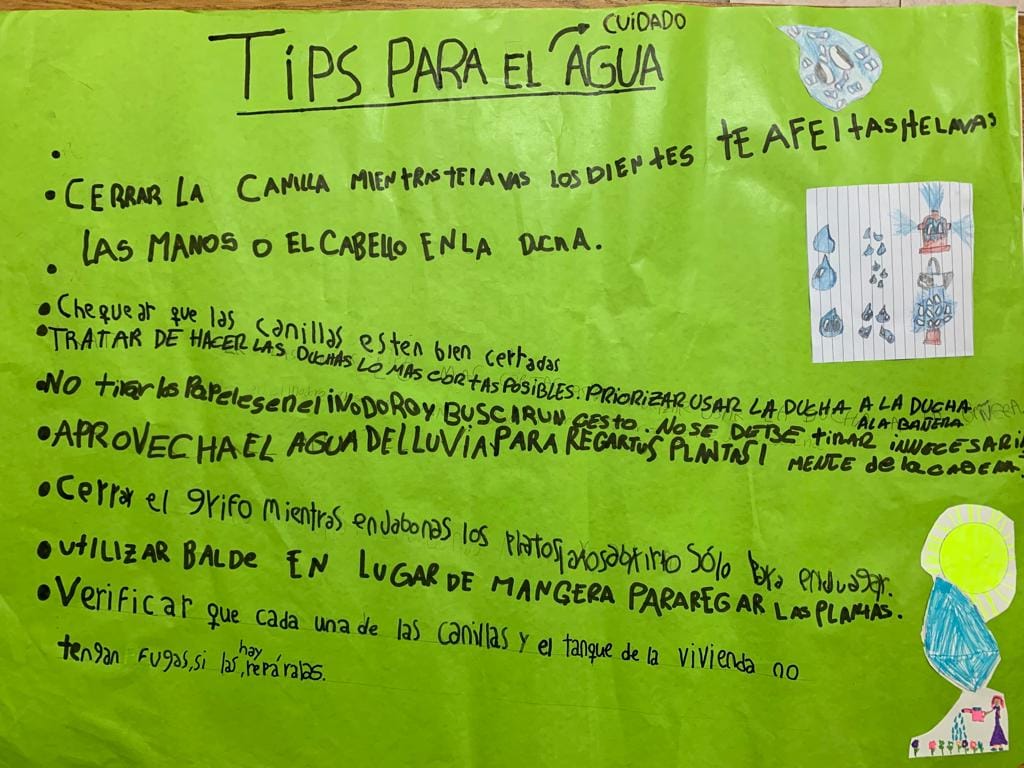 CUIDADO
TIPS PARA EL AGUA
• CERRAR LA CANILLA MIENTRAS TE LAVAS LOS DIENTES TE AFEITAS TE LAVAS
LAS MANOS O EL CABELLO EN LA DUCHA.
• Chequear que las canillas esten bien cerradas
• TRATAR DE HACER LAS DUCHAS LO MAS CORTAS POSIBLES. PRIORIZAR USAR LA DUCHA A LA DUCHA
A LA BAÑERA
• NO tirar los Papeles en el iNODORO y BUSCAR UN CESTO. NO SE DEBE tiRAR INNECESARIA
MENTE de la CADENA
• APROVECHA EL AGUA DE LLUVIA PARA REGAR TUS PLANTAS
• Cerrar el grifo mientras endabonas los platos, sólo para enjuagar.
• UTILIZAR BALDE EN LUGAR DE MANGERA PARA REGAR LAS PLANTAS.
• Verificar que cada una de las canillas y el tanque de la vivienda no
tengan fugas, si las hay, repáralas.